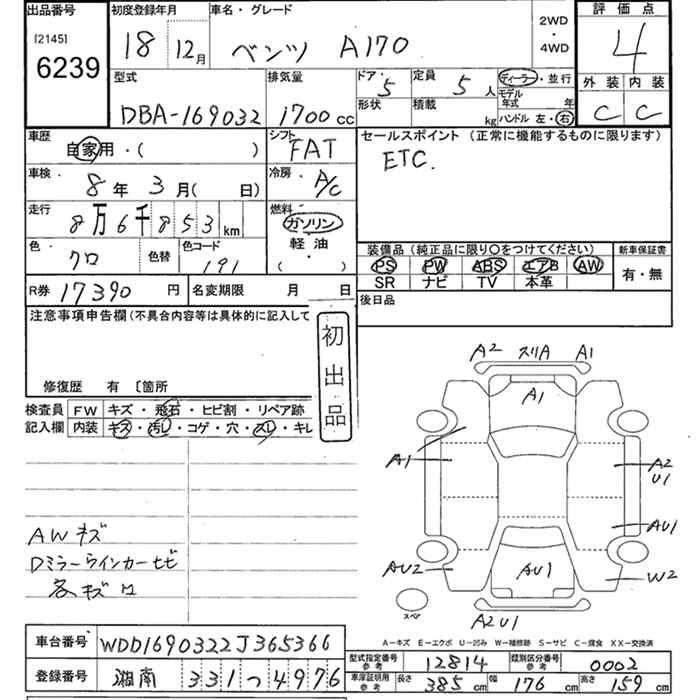 出品番号
[2145]
6239
初度登録年月
18 12月
車名・グレード
ベンツ A170
2WD
・
4WD
評価点
4
外装 内装
C C
型式
DBA-169032
排気量
1700cc
ドア 5
形状
定員 5人
積載 kg
ディーラー・並行
モデル年式 年
ハンドル 左・右
車歴
自家用・( )
シフト
FAT
車検
8年 3月( 日)
冷房
A/C
走行
8万6千853km
燃料
ガソリン
軽油
( )
色
クロ
色替
色コード
191
セールスポイント(正常に機能するものに限ります)
ETC.
装備品(純正品に限り○をつけてください)
PS PW ABS エアB AW
SR ナビ TV 本革
新車保証書
有・無
R券 17390円
名変期限 月 日
後日品
注意事項申告欄(不具合内容等は具体的に記入して
修復歴 有 〔箇所
初出品
検査員
記入欄
FW キズ・飛石・ヒビ割・リペア跡
内装 キズ・汚レ・コゲ・穴・スレ・キレ
AWキズ
Dミラーウインカーヒビ
各キズ
A2 スリA A1
A1
A1
A2
U1
AU1
AU2
AU1
W2
A2U1
スペア
A-キズ E-エクボ U-凹み W-補修跡 S-サビ C-腐食 XX-交換済
車台番号 WDD1690322J365366
登録番号 湘南 331つ4976
型式指定番号
参考
12814
類別区分番号
参考
0002
車庫証明用
参考
長さ 385cm 幅 176cm 高さ 159cm